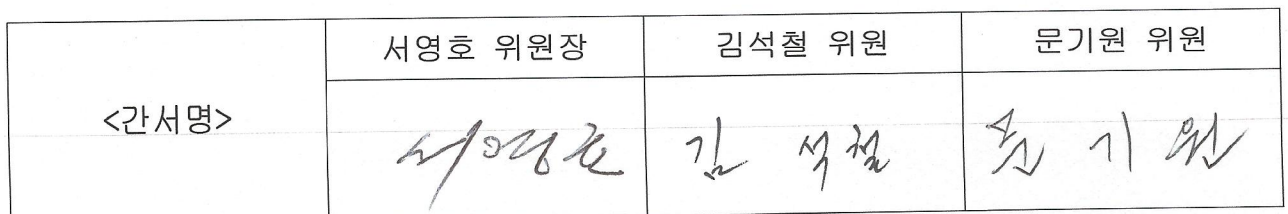 서영호 위원장 김석철 위원 문기원 위원
<간서명>
서영호 김석철 문기원